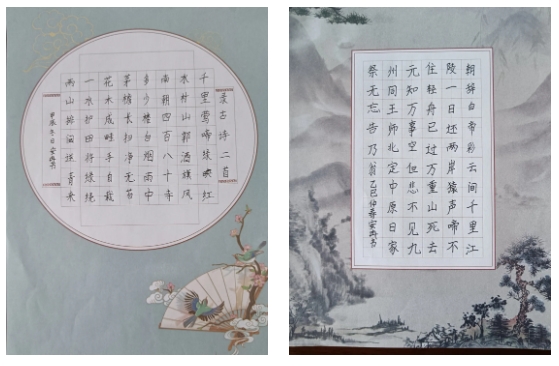 录古诗二首
千里莺啼绿映红
水村山郭酒旗风
南朝四百八十寺
多少楼台烟雨中
茅檐长扫净无苔
花木成畦手自栽
一水护田将绿绕
两山排闼送青来
甲辰冬月安书
朝辞白帝彩云间千里江
陵一日还两岸猿声啼不
住轻舟已过万重山死去
元知万事空但悲不见九
州同王师北定中原日家
祭无忘告乃翁 乙巳仲春安书